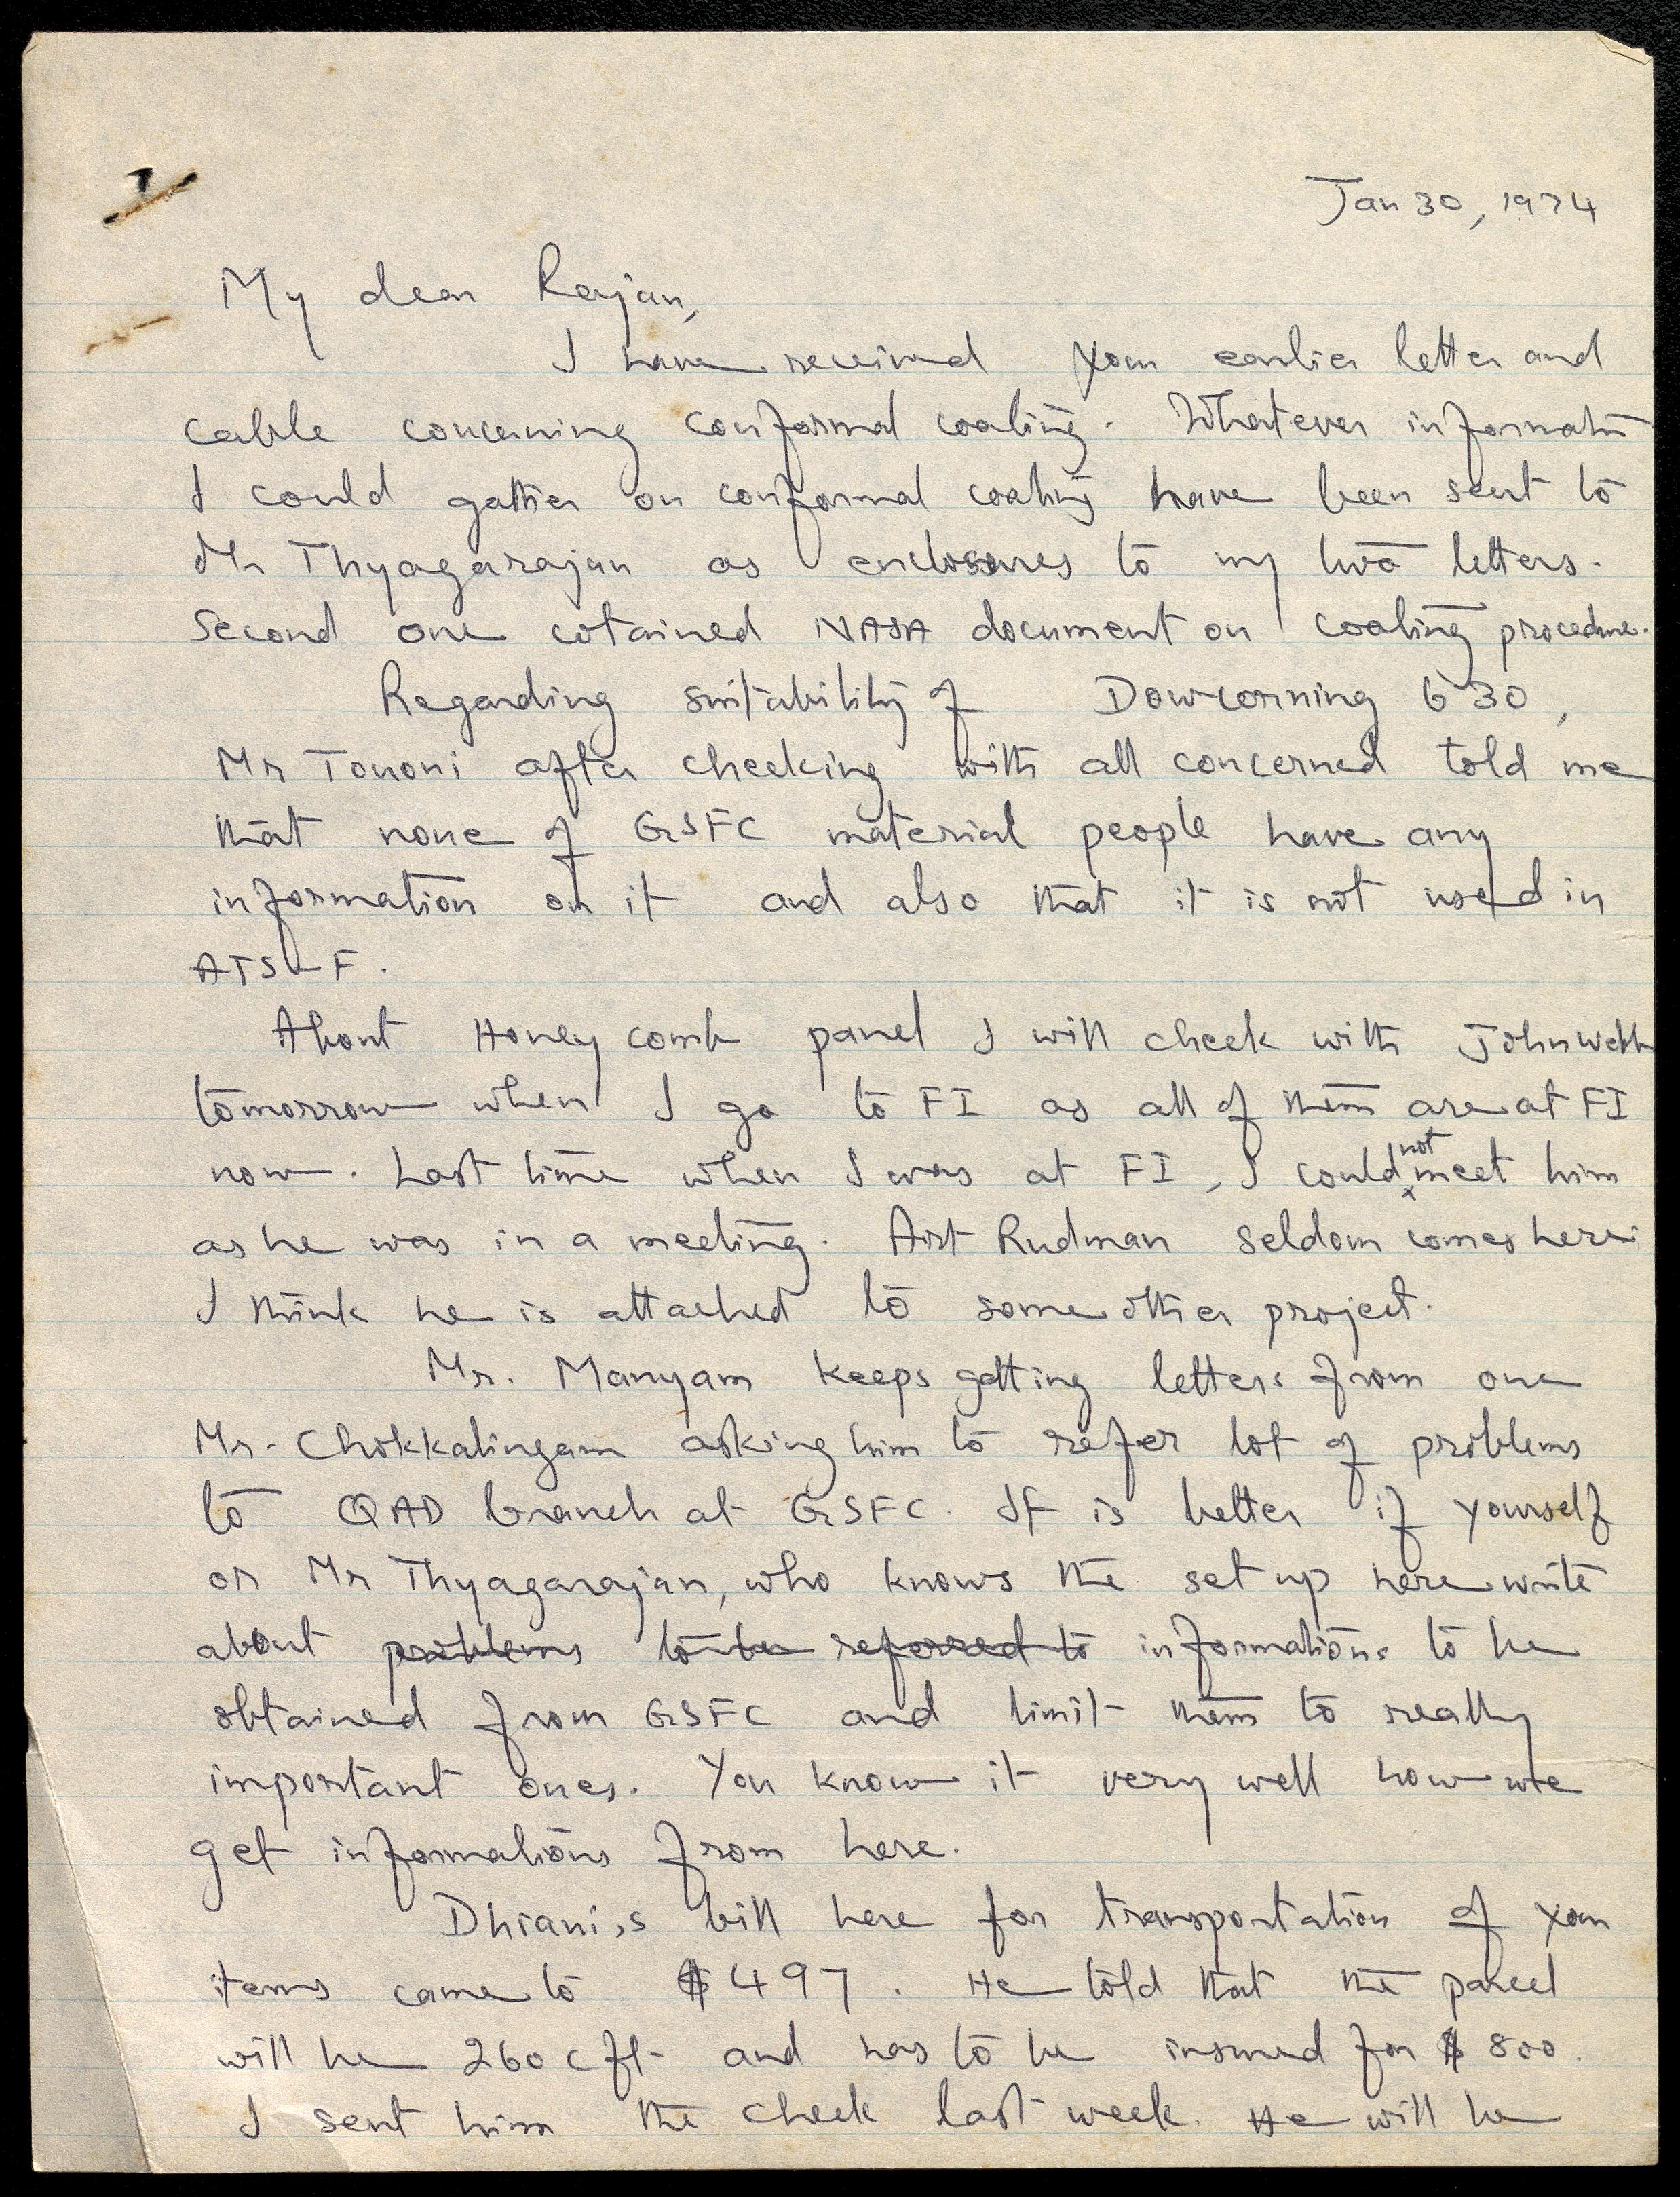 Jan 30, 1974
My dear Rajan,
I have received your earlier letter and
cable concerning conformal coating. Whatever information
I could gather on conformal coating have been sent to
Mr Thyagarajan as enclosures to my two letters.
Second one cotained NASA document on coating procedure.
Regarding suitability of Dowcorning 630,
Mr Tononi after checking with all concerned told me
that none of GSFC material people have any
information on it and also that it is not used in
ATS-F.
About Honey comb panel I will check with John Webb
tomorrow when I go to FI as all of them are at FI
now. Last time when I was at FI, I could not meet him
as he was in a meeting. Art Rudman seldom comes here.
I think he is attached to some other project.
Mr. Manyam keeps getting letters from one
Mr. Chokkalingam asking him to refer lot of problems
to QAD branch at GSFC. It is better if yourself
or Mr Thyagarajan, who knows the set up here write
about problems to be referred to informations to be
obtained from GSFC and limit them to really
important ones. You know it very well how we
get informations from here.
Dhiani,s bill here for transportation of your
items came to $497. He told that the parcel
will be 260 cft and has to be insured for $800.
I sent him the check last week. He will be